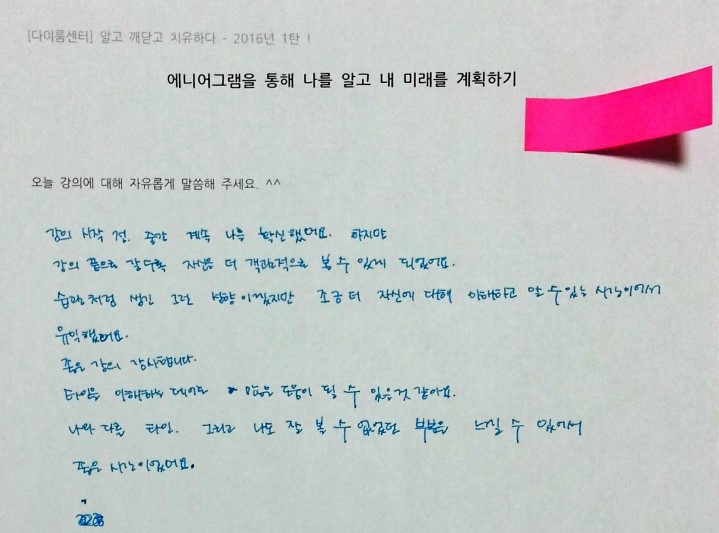 [다이룸센터] 알고 깨닫고 치유하다 - 2016년 1탄 !
에니어그램을 통해 나를 알고 내 미래를 계획하기
오늘 강의에 대해 자유롭게 말씀해 주세요. ^^
강의 시작 전. 중간 계속 나를 확신했어요. 하지만
강의 끝으로 갈수록 자신을 더 객관적으로 볼 수 있게 되었어요.
습관처럼 생긴 그런 성향이겠지만 조금 더 자신에 대해 이해하고 알 수 있는 시간이어서
유익했어요.
좋은 강의 감사합니다.
타인을 이해하는 데에도 많은 도움이 될 수 있을것 같아요.
나와 다른 타인. 그리고 나도 잘 볼 수 없었던 부분을 느낄 수 있어서
좋은 시간이었어요.